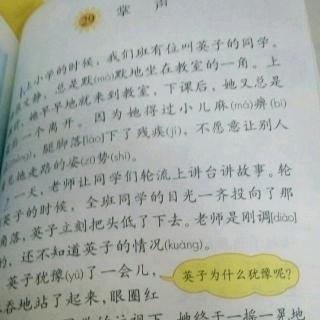 29 掌声
上小学的时候，我们班有位叫英子的同学。
安静，总是默(mò)默地坐在教室的一角。上
她早早地就来到教室，下课后，她又总是
一个离开。因为她得过小儿麻(má)痹(bì)
腿脚落(lào)下了残疾(jí)，不愿意让别人
她走路的姿(zī)势(shì)。
一天，老师让同学们轮流上讲台讲故事。轮
英子的时候，全班同学的目光一齐投向了那
角落，英子立刻把头低了下去。老师是刚调(diào)
的，还不知道英子的情况(kuàng)。
英子犹豫(yù)了一会儿，
英子为什么犹豫呢？
吞地站了起来，眼圈红
她终于一摇一晃地